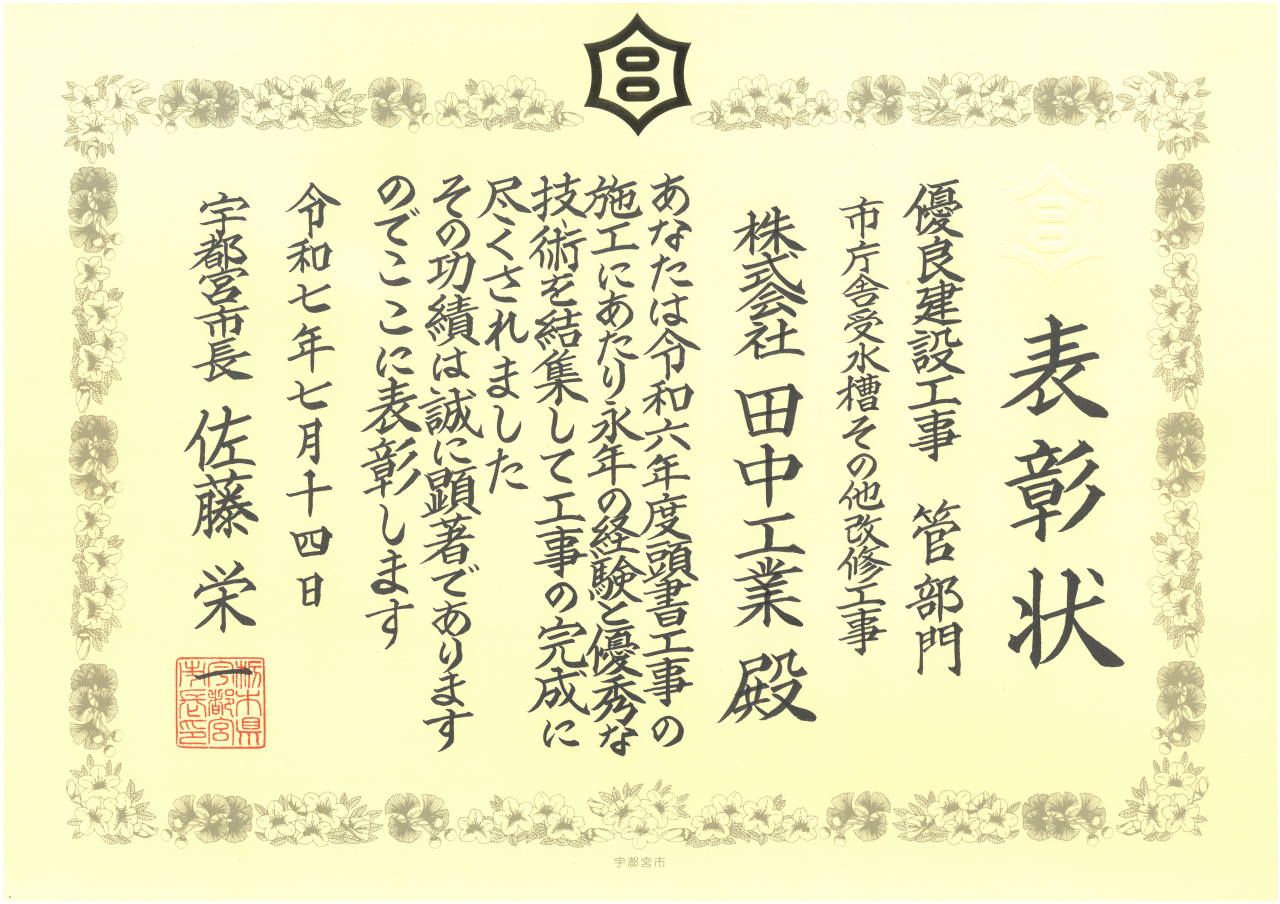 表彰状
優良建設工事 管部門
市庁舎受水槽その他改修工事
株式会社 田中工業 殿
あなたは令和六年度頭書工事の
施工にあたり永年の経験と優秀な
技術を結集して工事の完成に
尽くされました
その功績は誠に顕著であります
のでここに表彰します
令和七年七月十四日
宇都宮市長 佐藤栄一
栃木県
宇都宮
市長印
宇都宮市